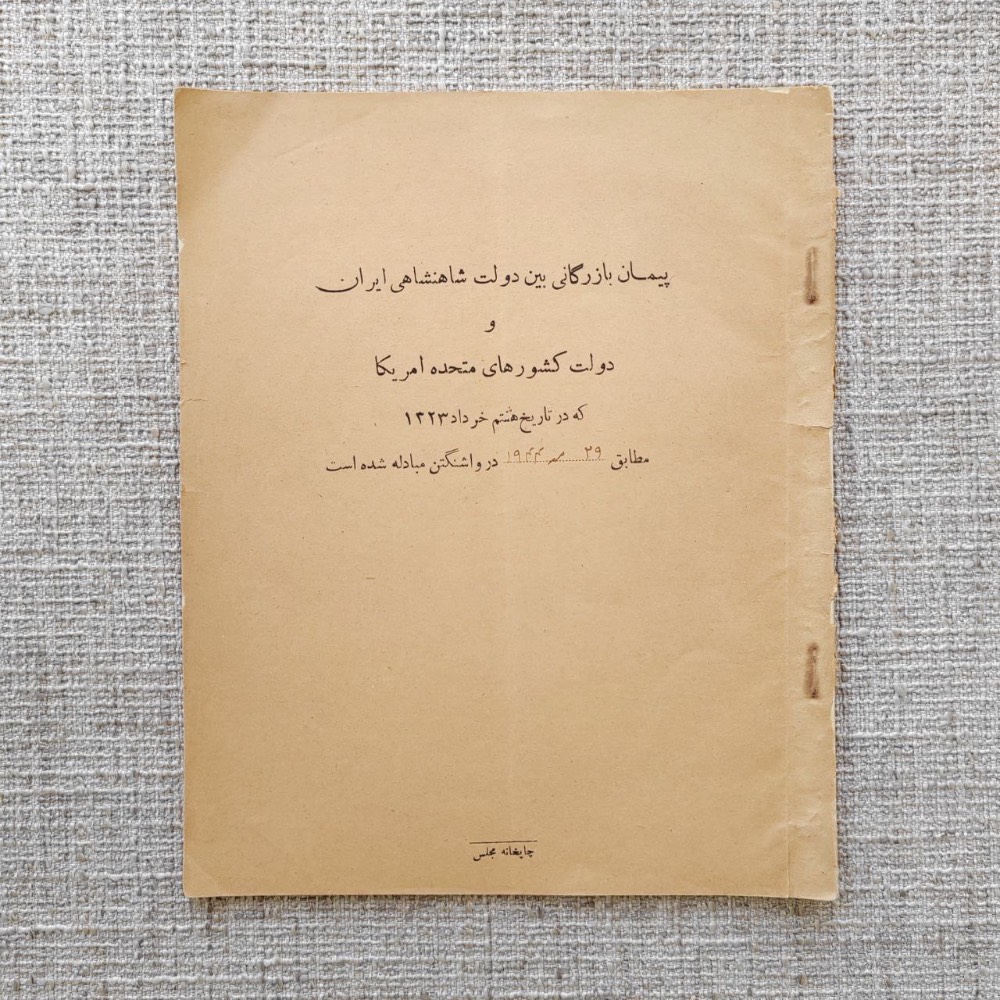 پیمان بازرگانی بین دولت شاهنشاهی ایران
و
دولت کشورهای متحده امریکا
که در تاریخ هشتم خرداد ۱۳۲۳
مطابق ۲۹ مه ۱۹۴۴ در واشنگتن مبادله شده است
چاپخانه مجلس